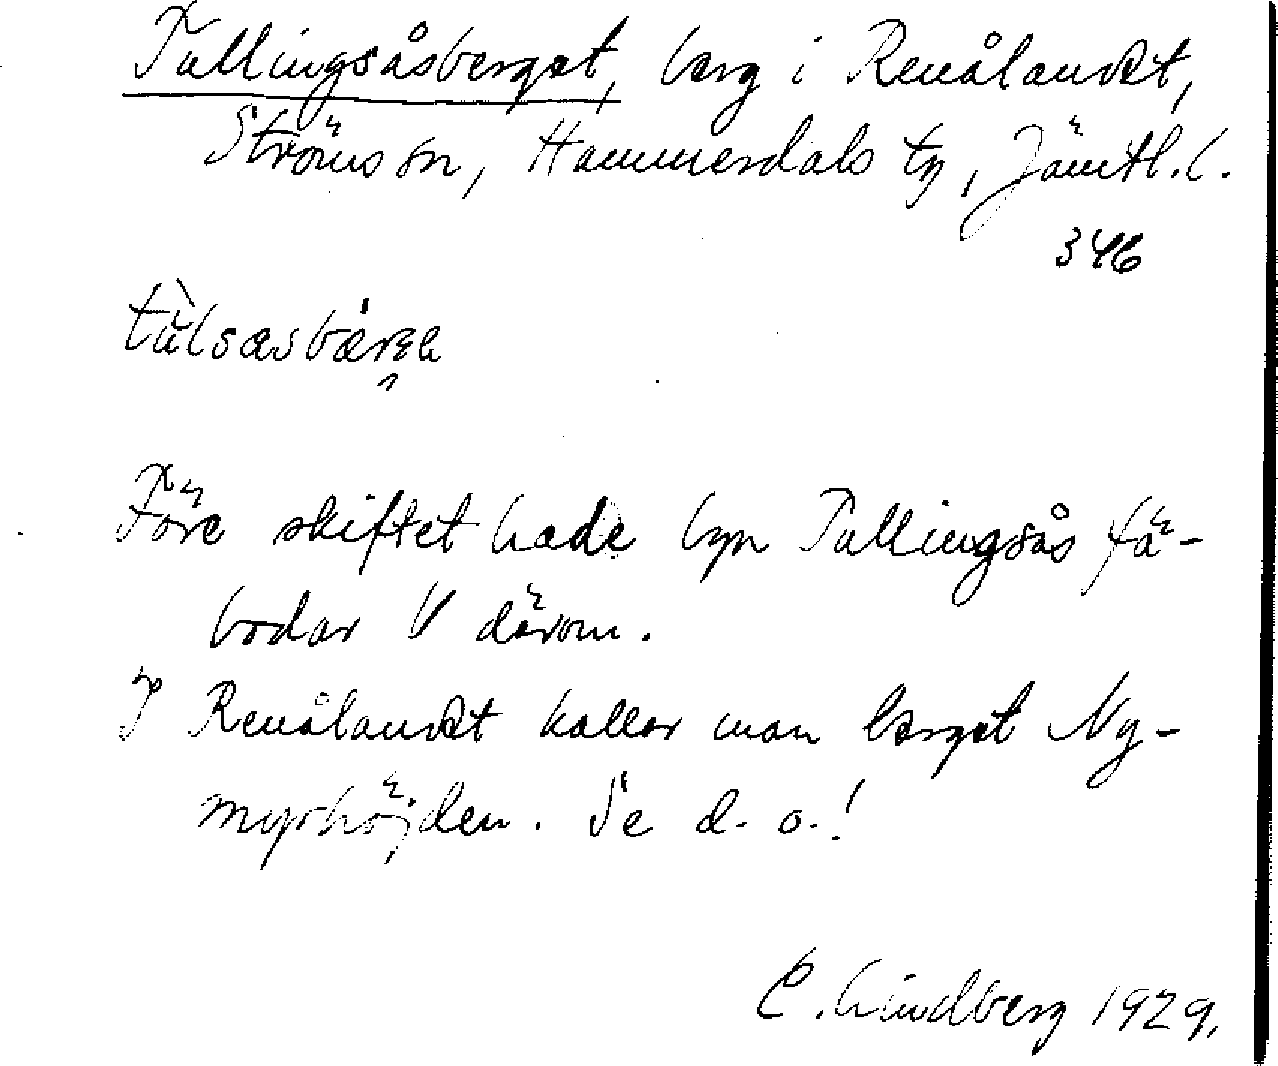 Tullingsåsberget, berg i Renålandet,
Ströms sn, Hammerdals tg, Jämtl. l.
346
Före skiftet hade byn Tullingsås fä-
bodar V därom.
I Renålandet kallar man berget Ny-
myrhöjden. Se d. o.!
C. Lindberg 1929.